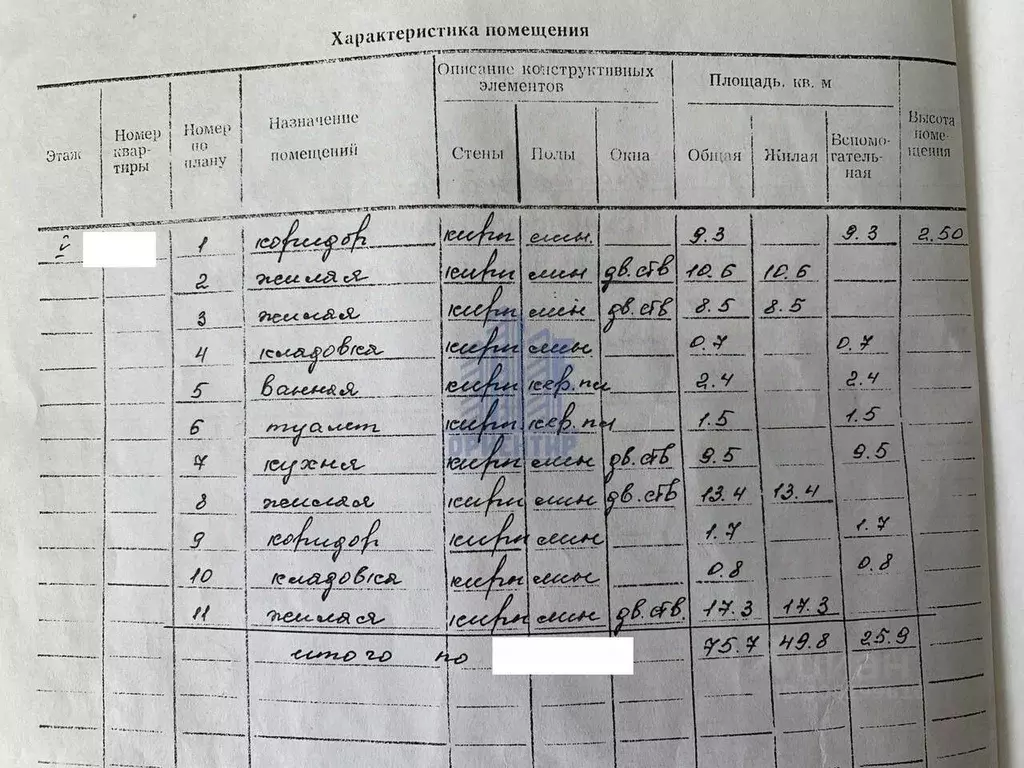 Характеристика помещения
Этаж Номер квар-тиры Номер по плану Назначение помещений Описание конструктивных элементов Площадь, кв. м Высота поме-щения
Стены Полы Окна Общая Жилая Вспомо-гатель-ная
1 коридор кирп мин. 9.3 9.3 2.50
2 жилая кирп мин дв.ств 10.6 10.6
3 жилая кирп мин дв.ств 8.5 8.5
4 кладовка кирп мин 0.7 0.7
5 ванная кирп кер.пл 2.4 2.4
6 туалет кирп. кер.пл 1.5 1.5
7 кухня кирп мин дв.ств 9.5 9.5
8 жилая кирп мин дв.ств 13.4 13.4
9 коридор кирп мин 1.7 1.7
10 кладовка кирп мин 0.8 0.8
11 жилая кирп мин дв.ств. 17.3 17.3
итого по 75.7 49.8 25.9
ОРИЕНТИР